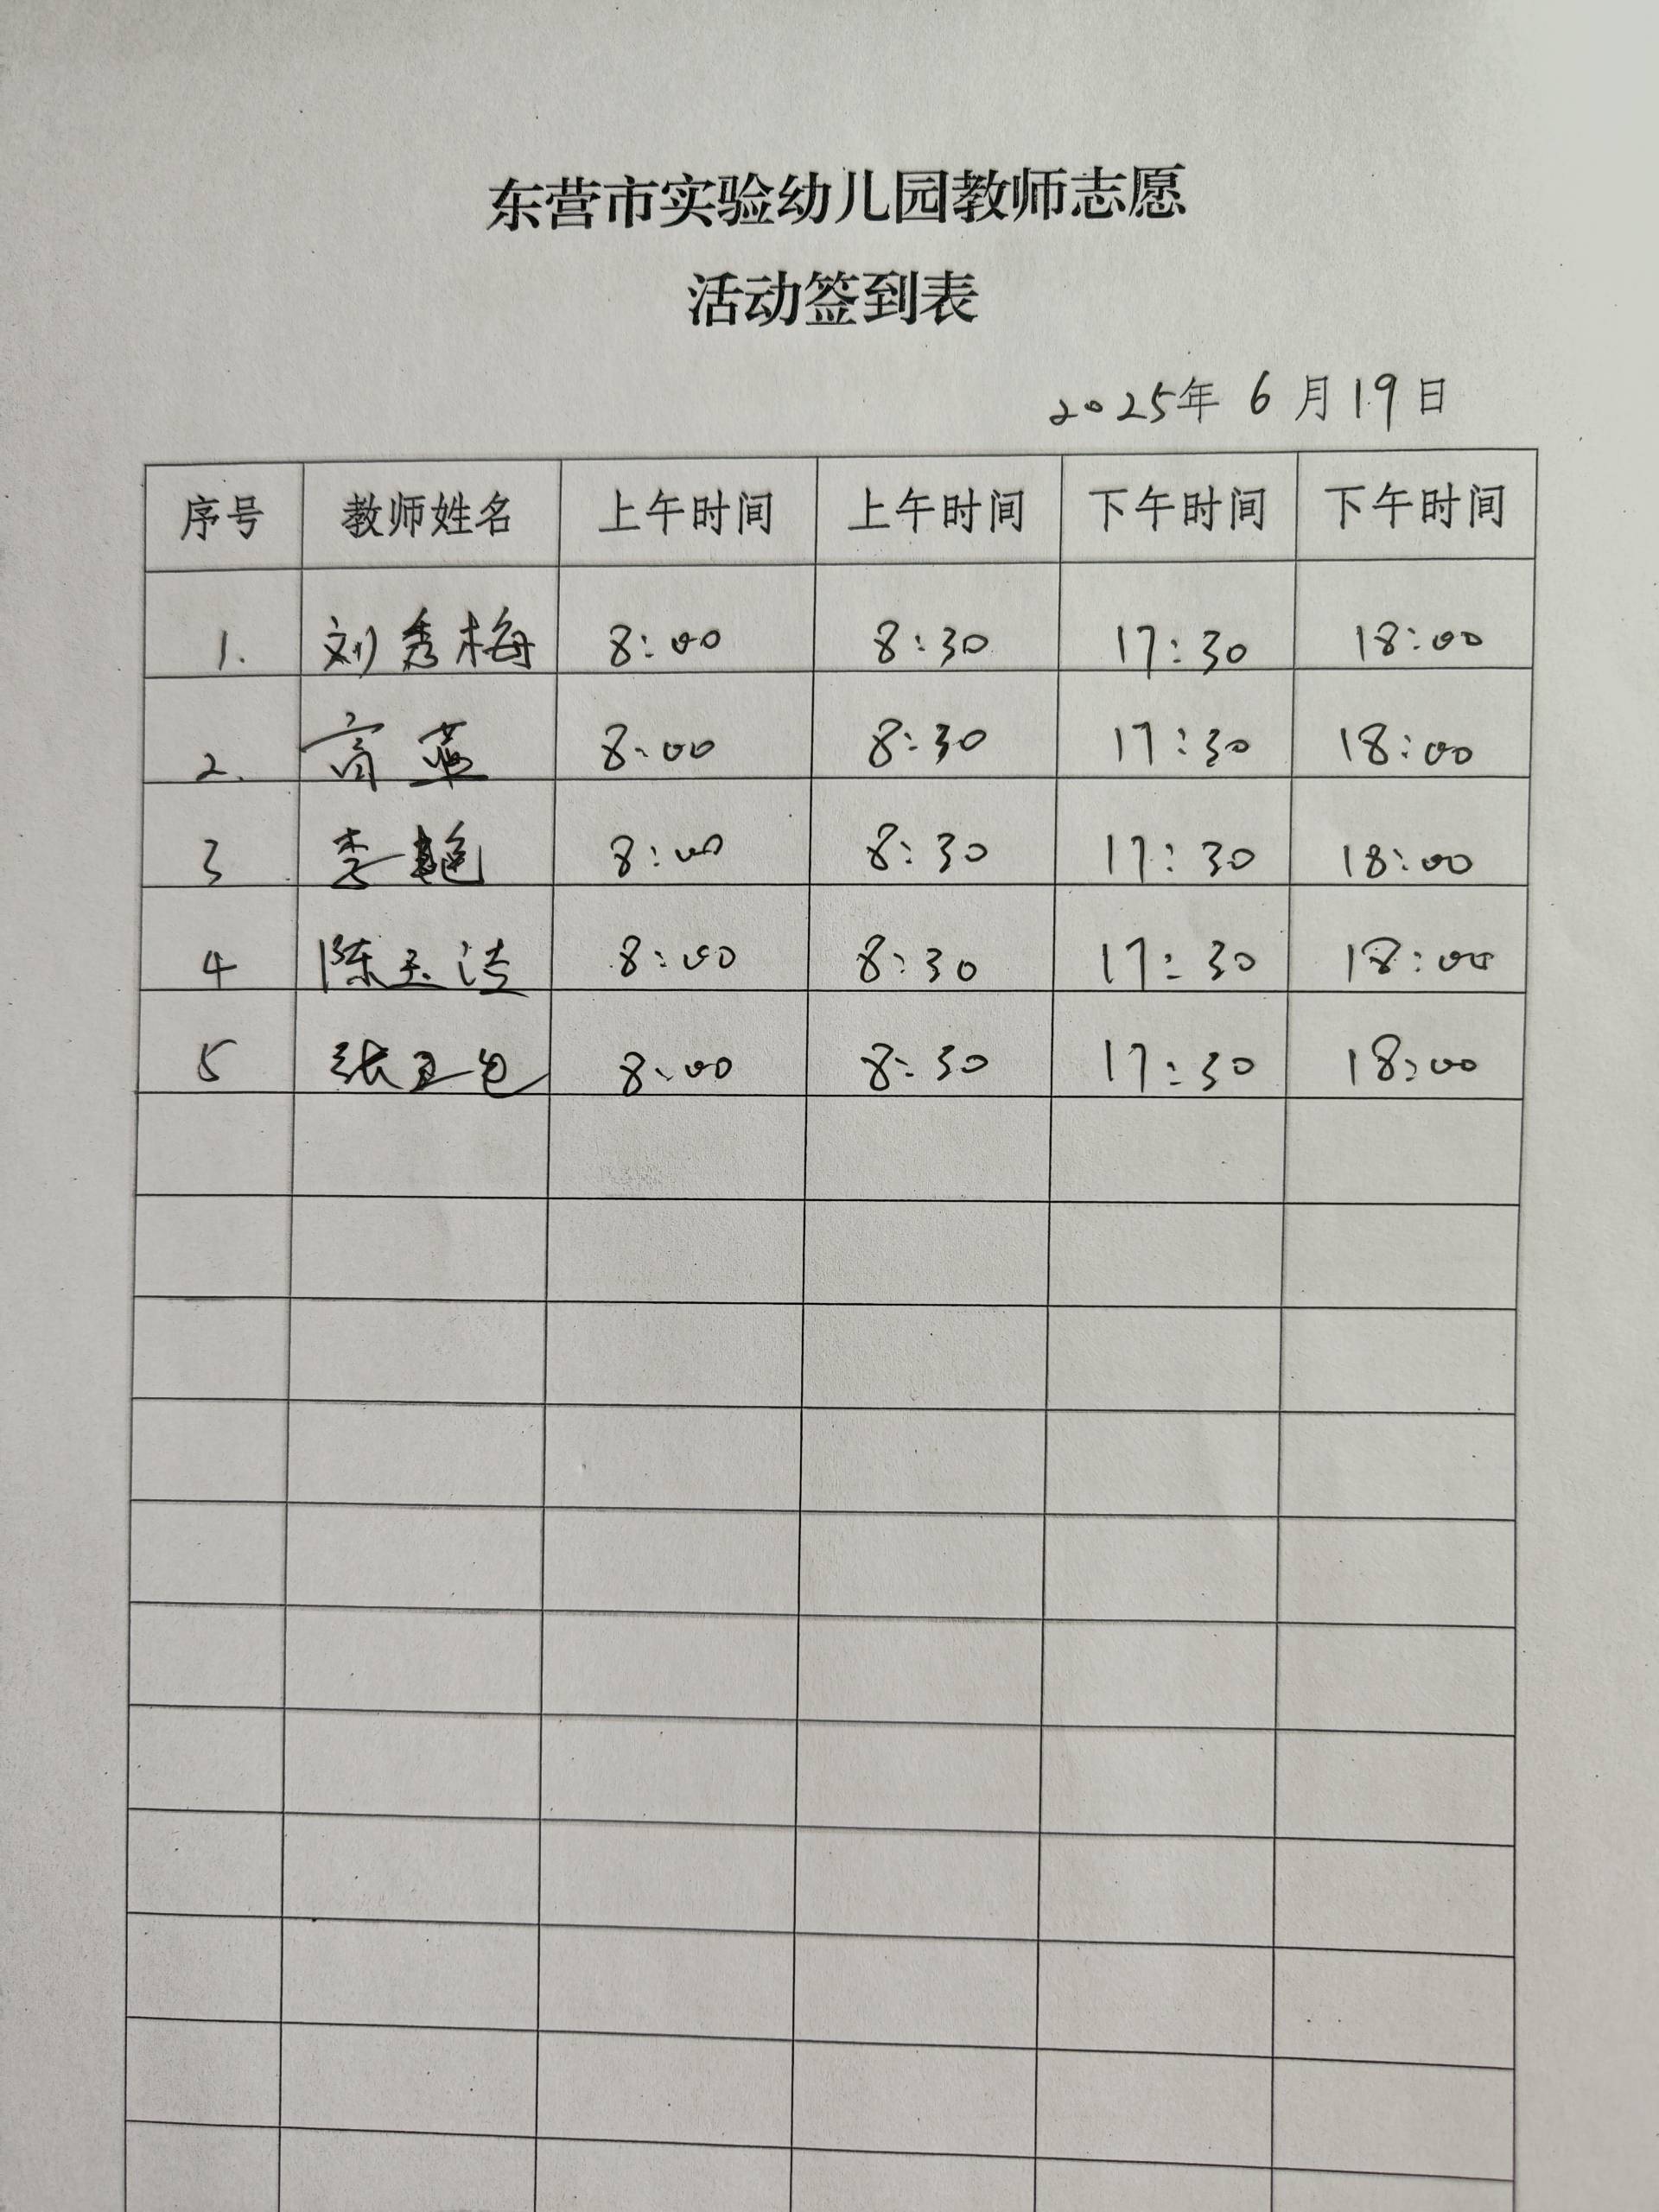 东营市实验幼儿园教师志愿
活动签到表
2025年 6 月 19 日
序号 教师姓名 上午时间 上午时间 下午时间 下午时间
1. 刘秀梅 8:00 8:30 17:30 18:00
2. 高 8:00 8:30 17:30 18:00
3 李艳 8:00 8:30 17:30 18:00
4 陈玉洁 8:00 8:30 17:30 18:00
5 张 8:00 8:30 17:30 18:00